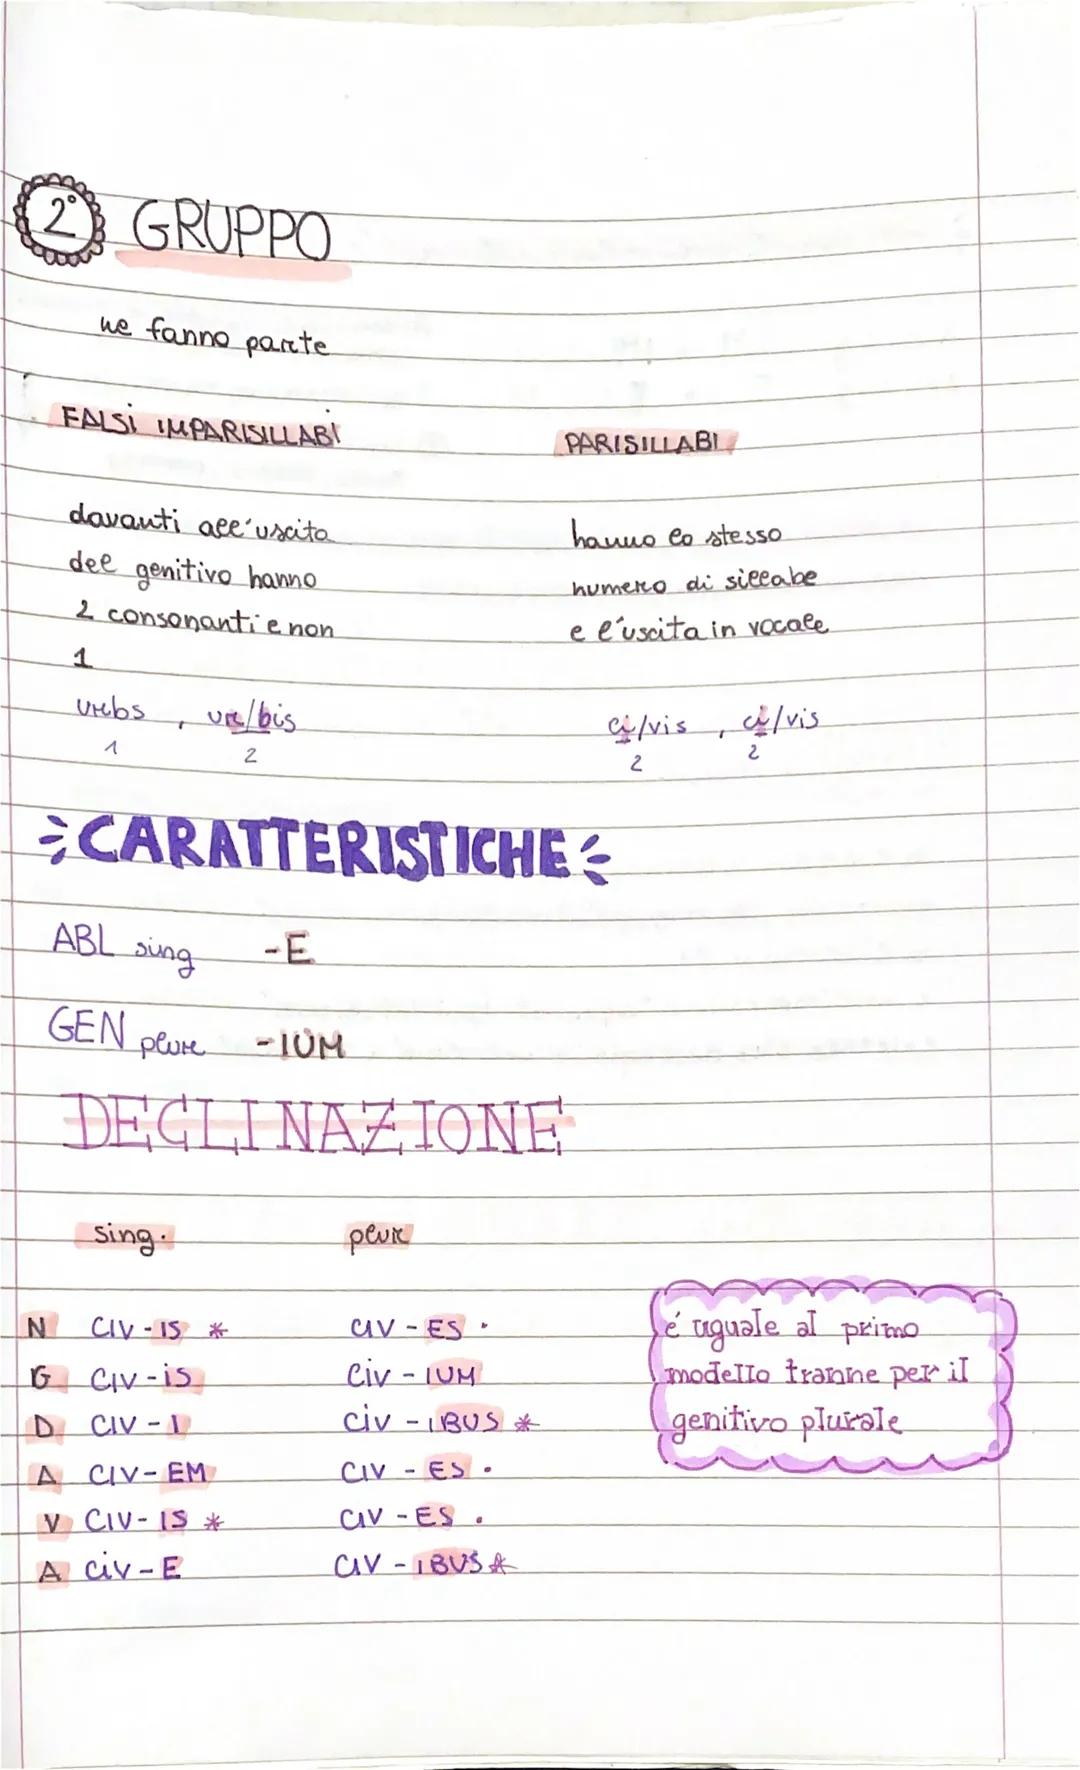 2° GRUPPO
ne fanno parte
FALSI IMPARISILLABI
davanti all'uscita
del genitivo hanno
2 consonanti e non
1
urbs, ur/bis
1 2
PARISILLABI
hanno lo stesso
numero di sillabe
e l'uscita in vocale
ci/vis, ci/vis
2 2
CARATTERISTICHE
ABL sing -E
GEN plur -IUM
DECLINAZIONE
sing. plur
N CIV-IS * CIV-ES •
G CIV-IS CIV-IUM
D CIV-I CIV-IBUS *
A CIV-EM CIV-ES •
V CIV-IS * CIV-ES •
A CIV-E CIV-IBUS *
é uguale al primo
modello tranne per il
genitivo plurale